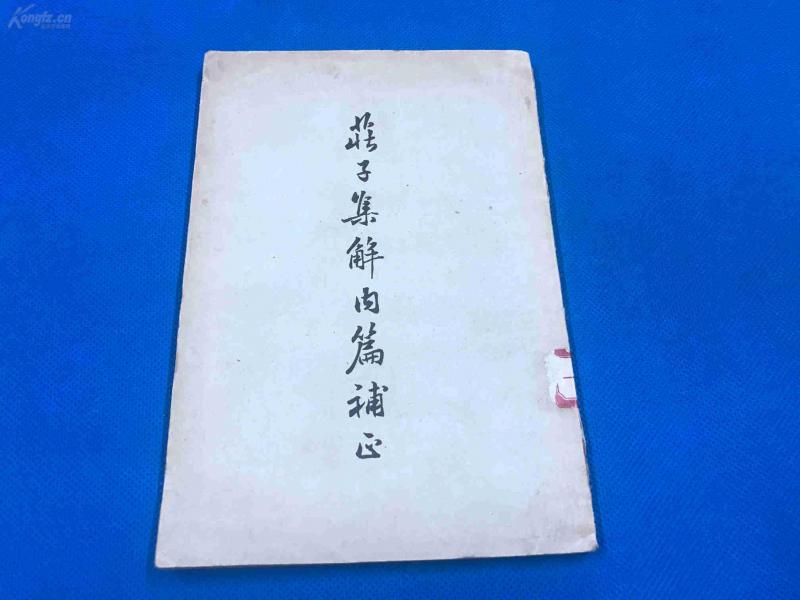 Kongfz.cn
莊子集解内篇補正